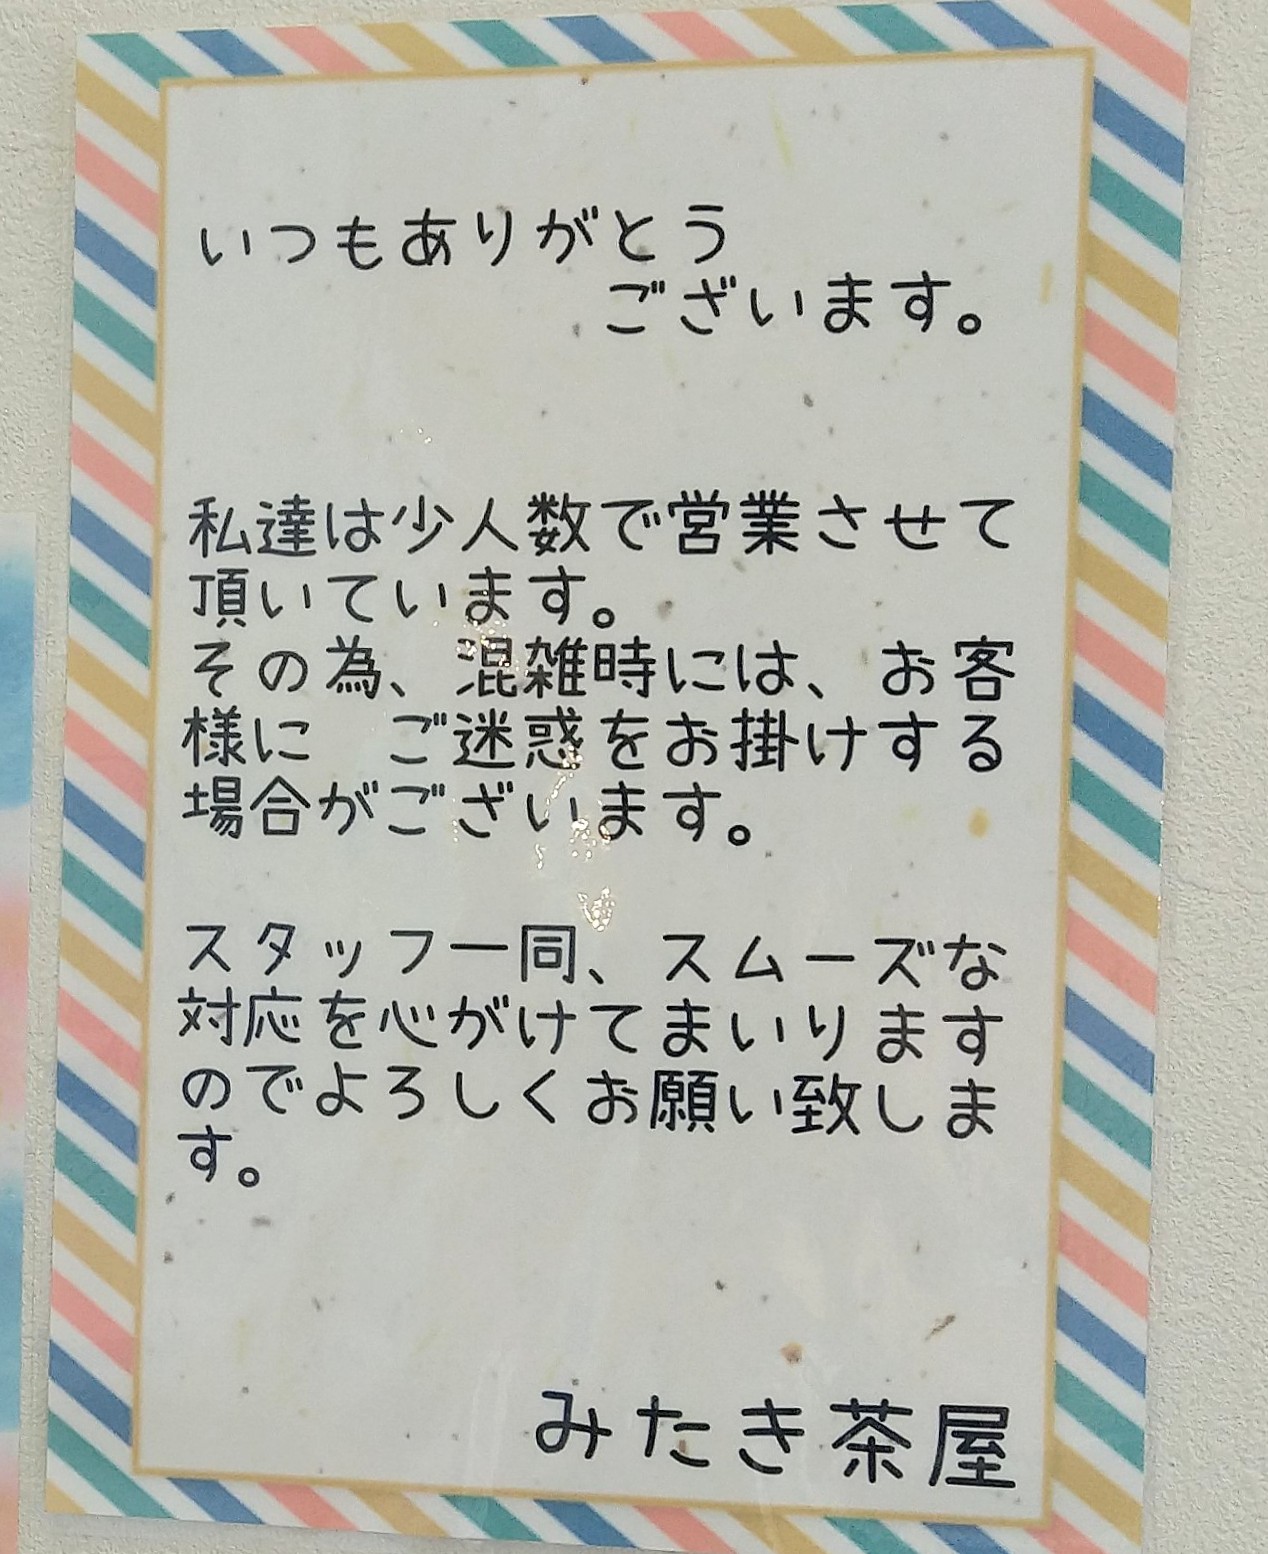 いつもありがとう
ございます。
私達は少人数で営業させて
頂いています。
その為、混雑時には、お客
様に　ご迷惑をお掛けする
場合がございます。
スタッフ一同、スムーズな
対応を心がけてまいります
のでよろしくお願い致しま
す。
みたき茶屋